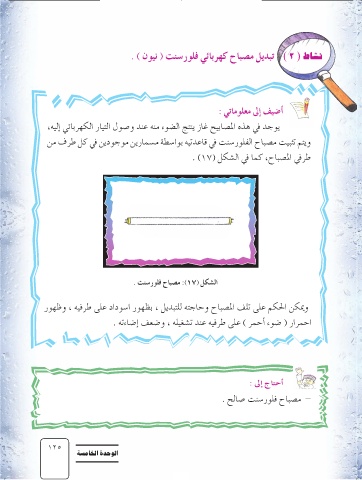 نشاط (٢) تبديل مصباح كهربائي فلورسنت ( نيون ) .
أضيف إلى معلوماتي :
يوجد في هذه المصابيح غاز ينتج الضوء منه عند وصول التيار الكهربائي إليه،
ويتم تثبيت مصباح الفلورسنت في قاعدتيه بواسطة مسمارين موجودين في كل طرف من
طرفي المصباح، كما في الشكل (١٧) .
الشكل (١٧): مصباح فلورسنت .
ويمكن الحكم على تلف المصباح وحاجته للتبديل ، بظهور اسوداد على طرفيه ، وظهور
احمرار ( ضوء أحمر ) على طرفيه عند تشغيله ، وضعف إضاءته .
أحتاج إلى :
– مصباح فلورسنت صالح .
الوحدة الخامسة
١٢٥